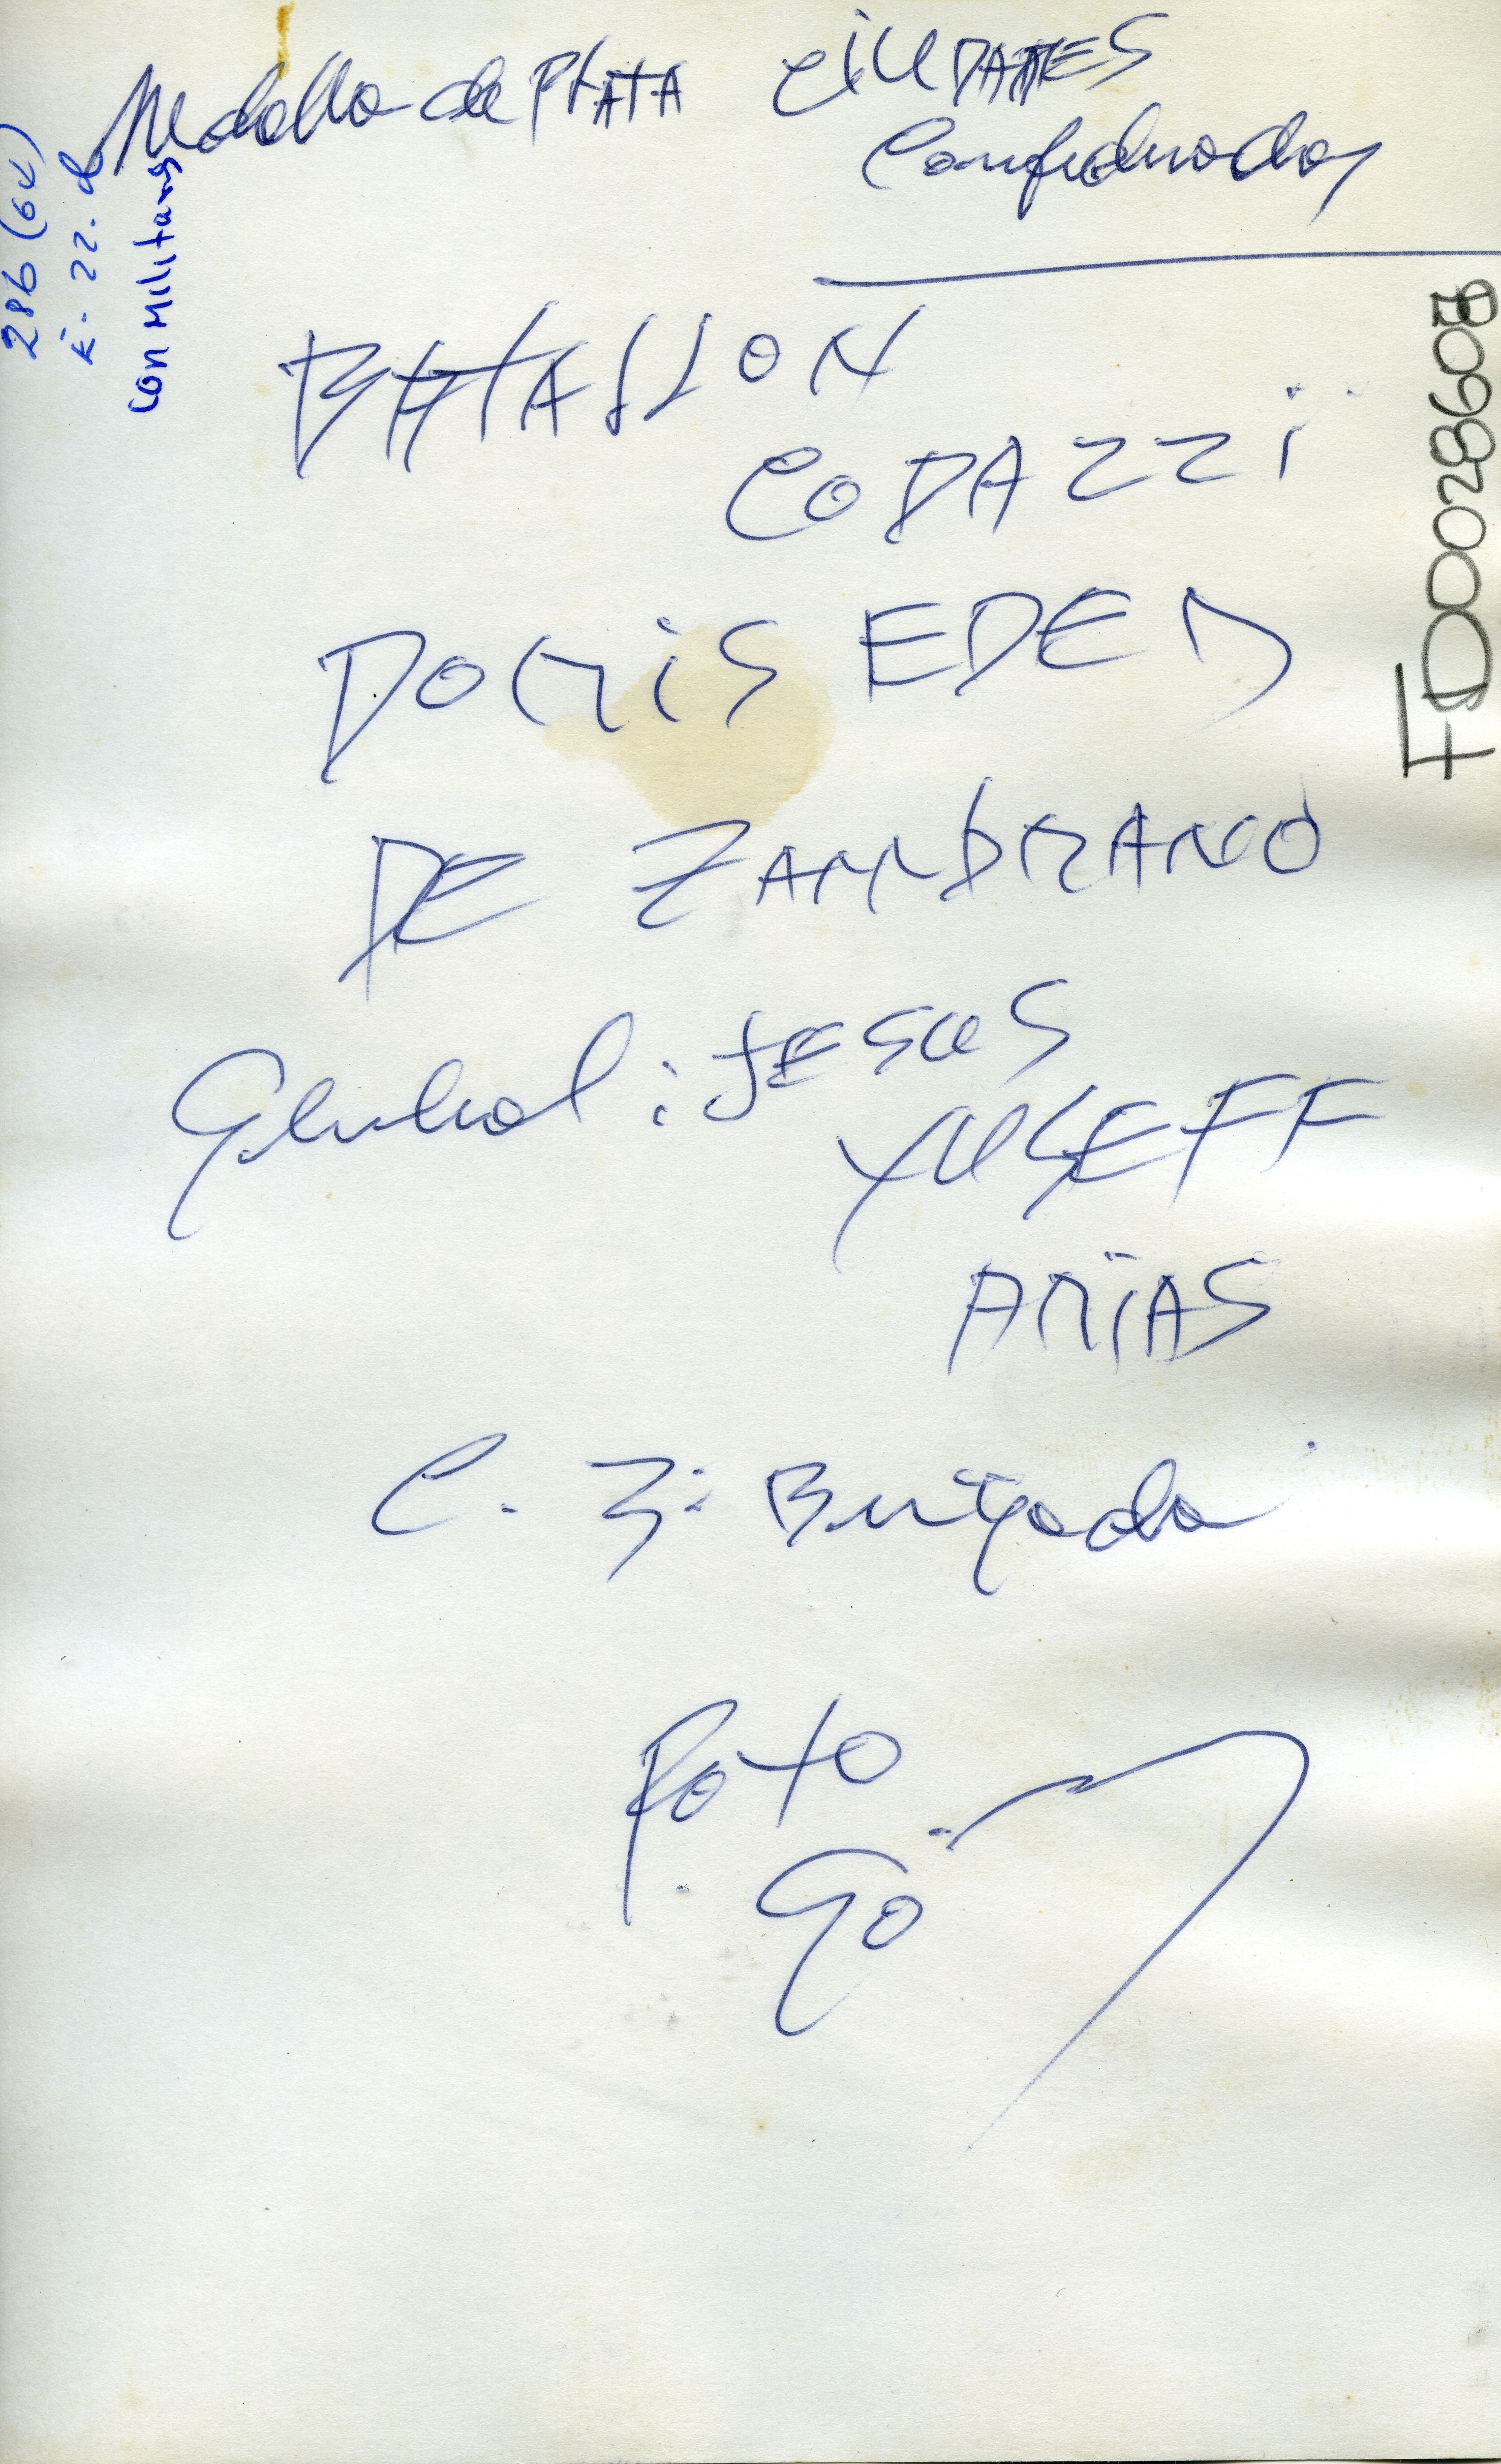 Medalla de PlATA CiUDADES
Confederadas
BATAllON
CODAZZi
DORiS EDER
DE ZAMbRANO
General: JESUS
YUSEFF
ARiAS
C. 3: Brigada
Foto
Go
286 (64)
E. 22. d
con Militares
FD0028608